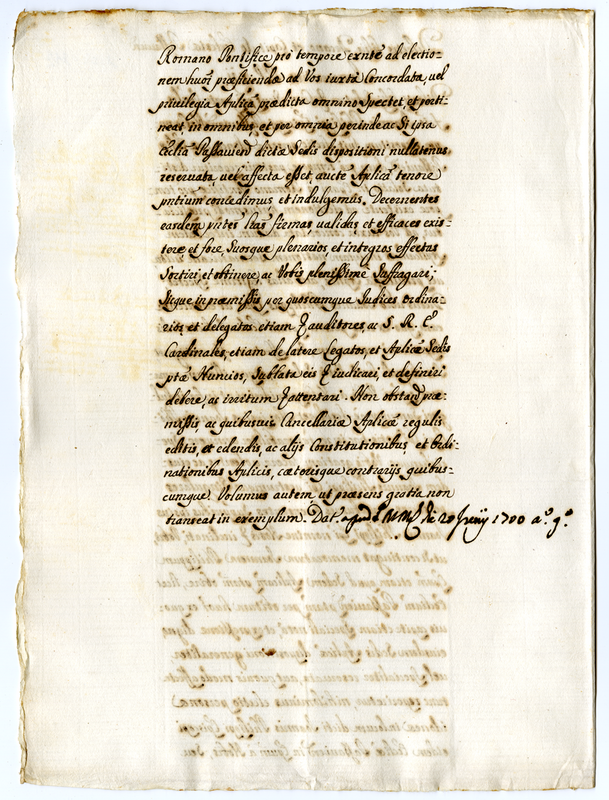 Romano Pontifice pro tempore exnte ad electio-
nem huoi præficiendæ ad Vos iuxta Concordata, vel
privilegia Aplica prædicta omnino Spectet, et perti-
neat in omnibus, et per omnia perinde ac Si ipsa
Ecclia Passavien dictæ Sedis dispositioni nullatenus
reservata, vel affecta esset, aucte Aplica tenore
pntium concedimus et indulgemus. Decernentes
easdem pntes lras firmas, validas, et efficaces exis-
tere et fore, Suosque plenarios, et integros effectus
Sortiri, et obtinere, ac Vobis plenissime Suffragari;
Sicque in præmissis per quoscumque Judices ordina-
rios, et delegatos, etiam auditores ac S. R. E.
Cardinales, etiam de latere Legatos, et Aplicæ Sedis
ptæ Nuncios, Sublata eis iudicari, et definiri
debere, ac irritum attentari. Non obstand præ-
missis, ac quibusvis Cancellariæ Aplicæ regulis
editis, et edendis, ac alijs Constitutionibus, et Ordi-
nationibus Aplicis, cæterisque contrarijs quibus-
cumque Volumus autem, ut præsens gratia non
transeat in exemplum. Dat. apud S. M. M. die 28 Junij 1700 a.º 9.º